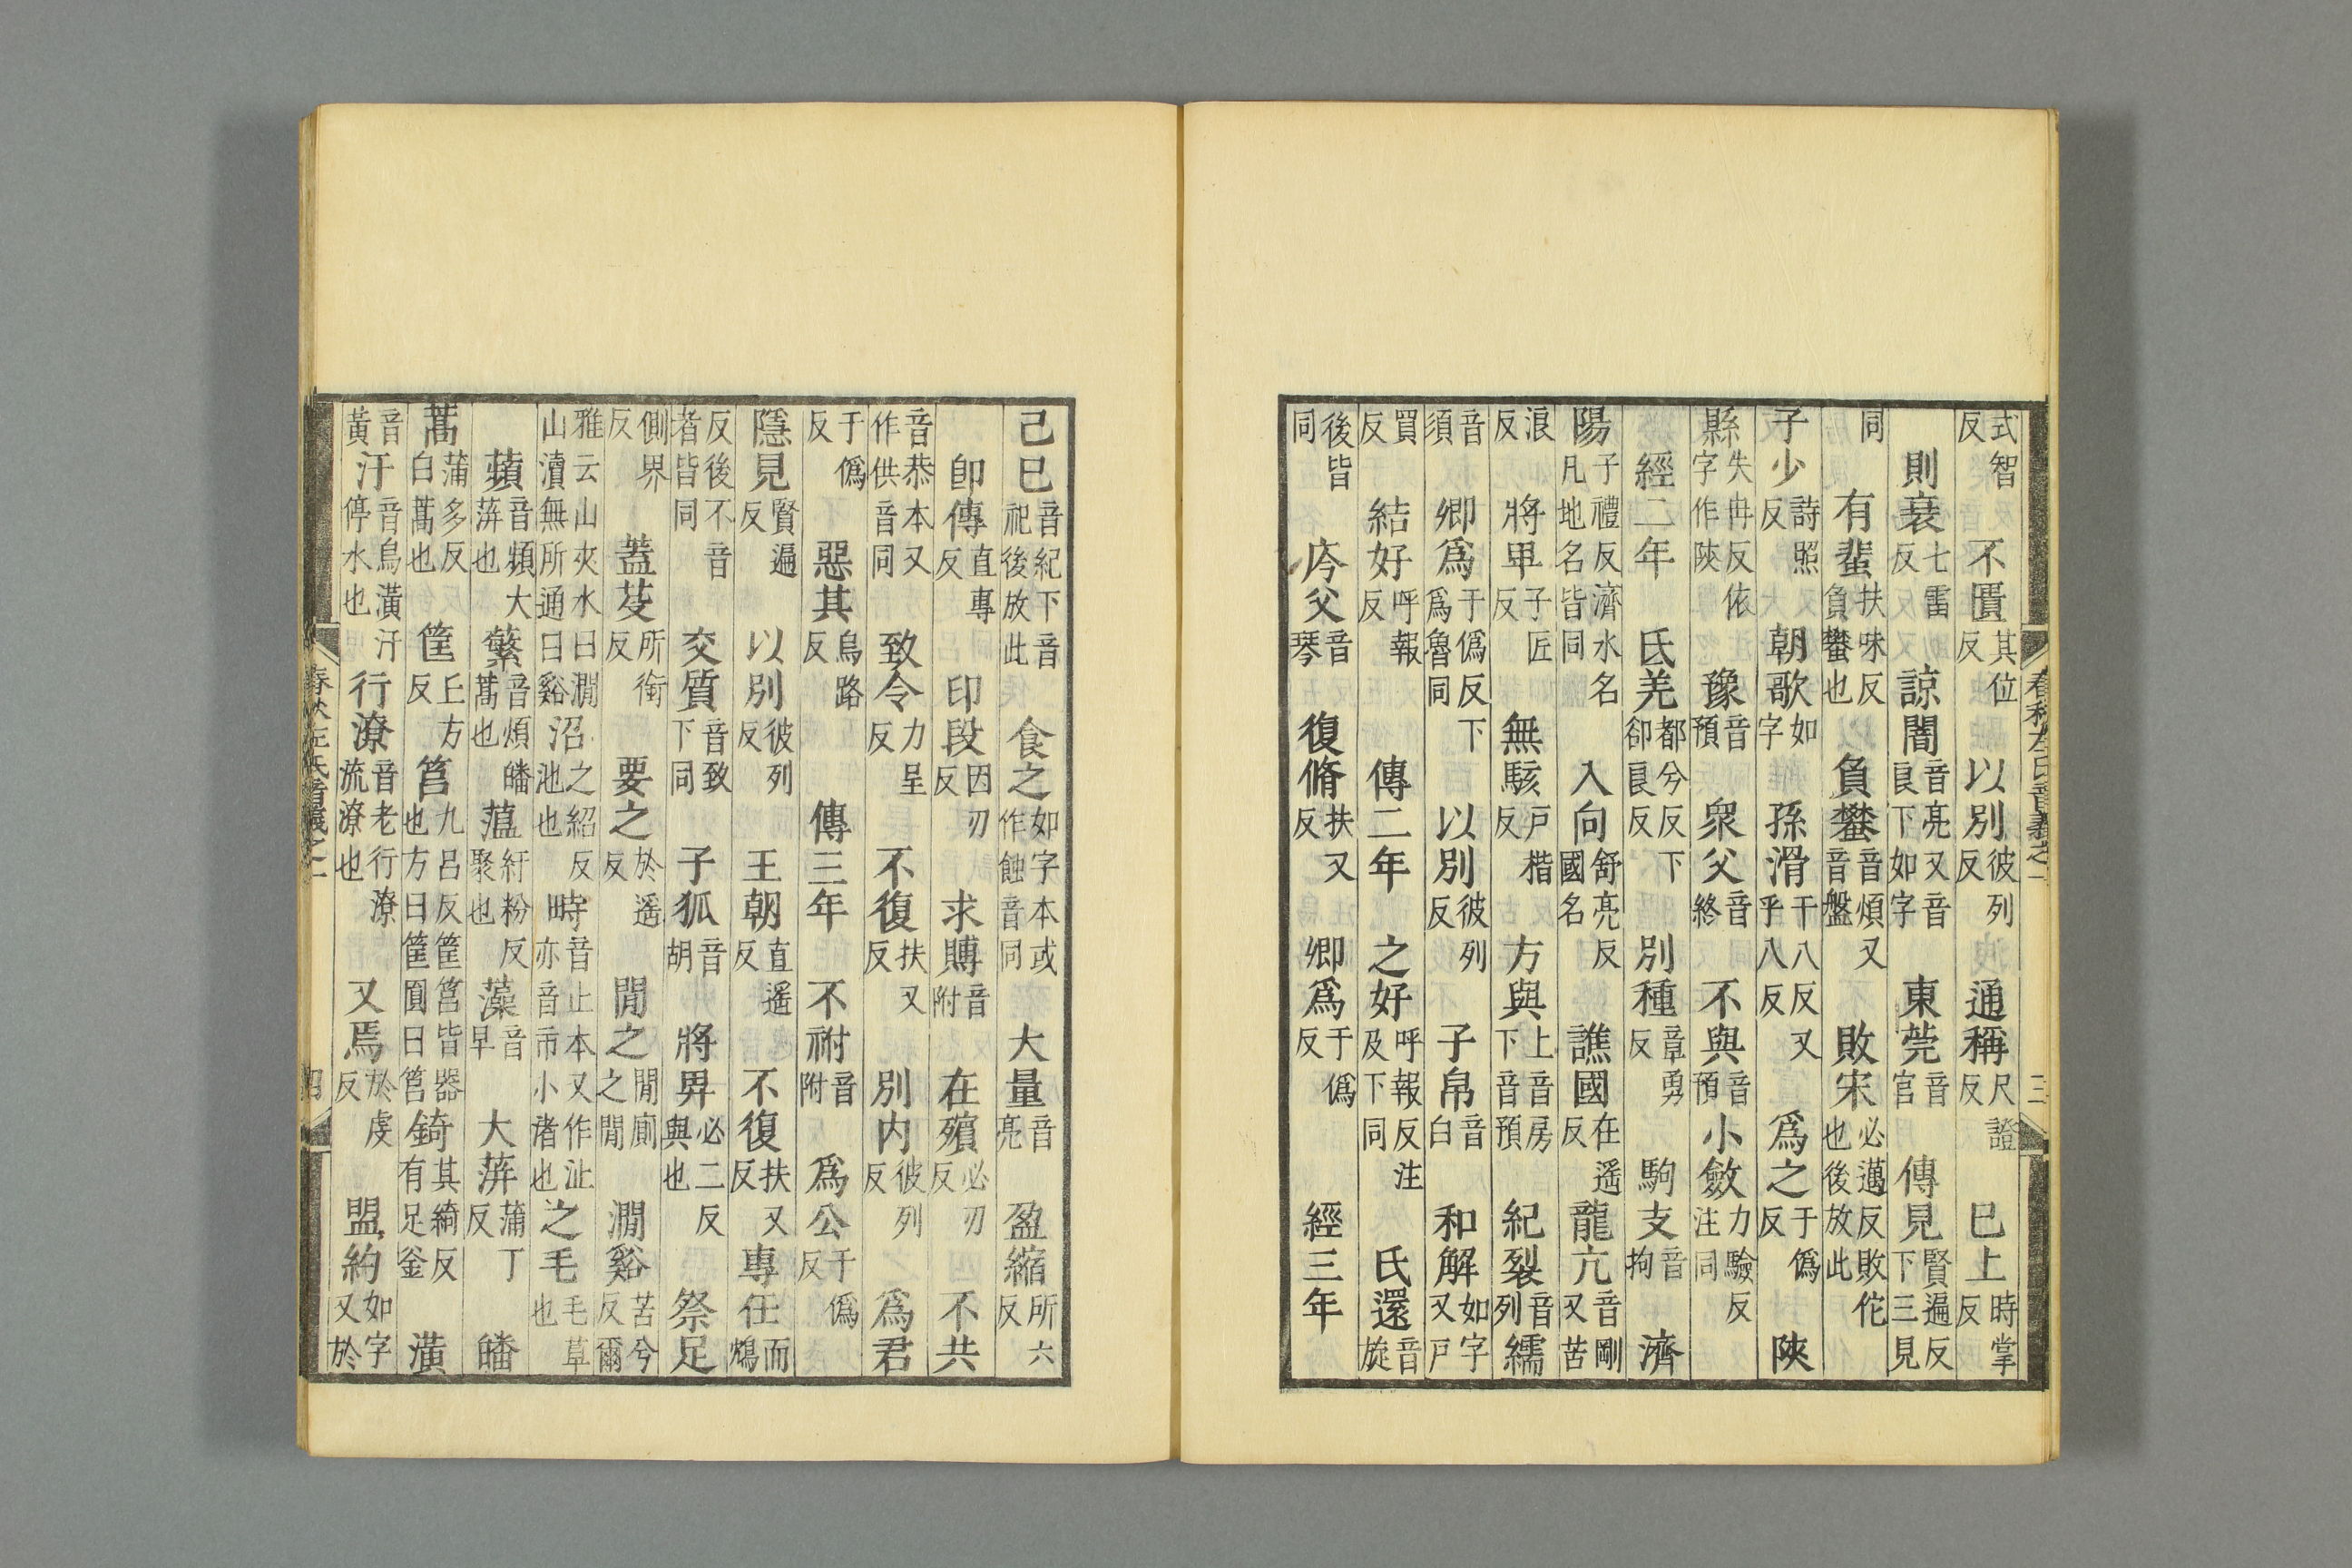 春秋左氏音義之一 三
式智反 不匱其位反 以別彼列反 通稱尺證反 巳上時掌反
則衰七雷反 諒闇音亮又音良下如字 東莞音官 傳見賢遍反下三見
同 有蜚扶味反負蠜也 負蠜音煩又音盤 敗宋必邁反敗佗也後放此
子少詩照反 朝歌如字 孫滑干八反又乎八反 爲之于僞反 陜
縣失冉反依字作陝 豫音預 衆父音終 不與音預 小斂力驗反注同
經二年 氐羌都兮反下卻良反 別種章勇反 駒支音拘 濟
陽子禮反濟水名凡地名皆同 入向舒亮反國名 譙國在遥反 龍亢音剛又苦
浪反 將卑子匠反 無駭戶楷反 方與上音房下音預 紀裂音列 繻
音須 卿爲于僞反下爲魯同 以別彼列反 子帛音白 和解如字又戶
買反 結好呼報反 傳二年 之好呼報反注及下同 氏還音旋
後皆同 庈父音琴 復脩扶又反 卿爲于僞反 經三年
己巳音紀下音祀後放此 食之如字本或作蝕音同 大量音亮 盈縮所六反
卽傳直專反 印段因刃反 求賻音附 在殯必刃反 不共
音恭本又作供音同 致令力呈反 不復扶又反 別内彼列反 爲君
于僞反 惡其烏路反 傳三年 不祔音附 爲公于僞反
隱見賢遍反 以別彼列反 王朝直遥反 不復扶又反 專任而鴆
反後不音者皆同 交質音致下同 子狐音胡 將畀必二反與也 祭足
側界反 蓋芟所銜反 要之於遥反 閒之閒廁之閒 澗谿苦兮反爾
雅云山夾水曰澗山瀆無所通曰谿 沼之紹反池也 畤音止本又作沚亦音市小渚也 之毛毛草也
蘋音頻大蓱也 蘩音煩皤蒿也 薀紆粉反聚也 藻音早 大蓱蒲丁反 皤
蒿蒲多反白蒿也 筐丘方反 筥九呂反筐筥皆器也方曰筐圓曰筥 錡其綺反有足釜 潢
音黃 汙音烏潢汙停水也 行潦音老行潦流潦也 又焉於虔反 盟約如字又於
春秋左氏音義之一 四